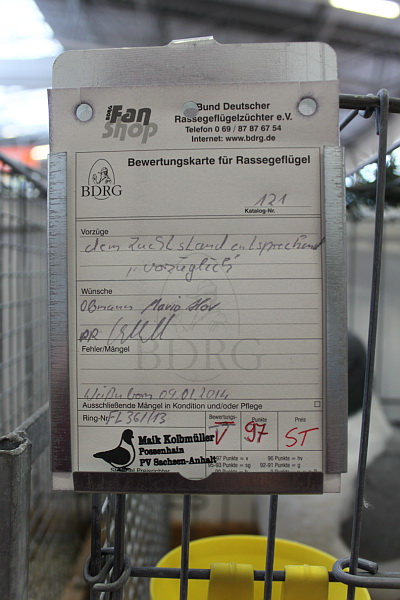 BDRG
Fan
Shop
Bund Deutscher
Rassegeflügelzüchter e.V.
Telefon 0 69 / 87 87 67 54
Internet: www.bdrg.de
Bewertungskarte für Rassegeflügel
BDRG
121
Katalog-Nr.
Vorzüge
dem Zuchtstand entsprechend
"vorzüglich"
Wünsche
Oßmann Mario
Fehler/Mängel
BDRG
09.01.2014
Ausschließende Mängel in Kondition und/oder Pflege
Ring-Nr. FL 361/13
Bewertungs- Punkte Preis
V 97 ST
Maik Kolbmüller
Possenhain
PV Sachsen-Anhalt
97 Punkte = v 96 Punkte = hv
95-93 Punkte = sg 92-91 Punkte = g